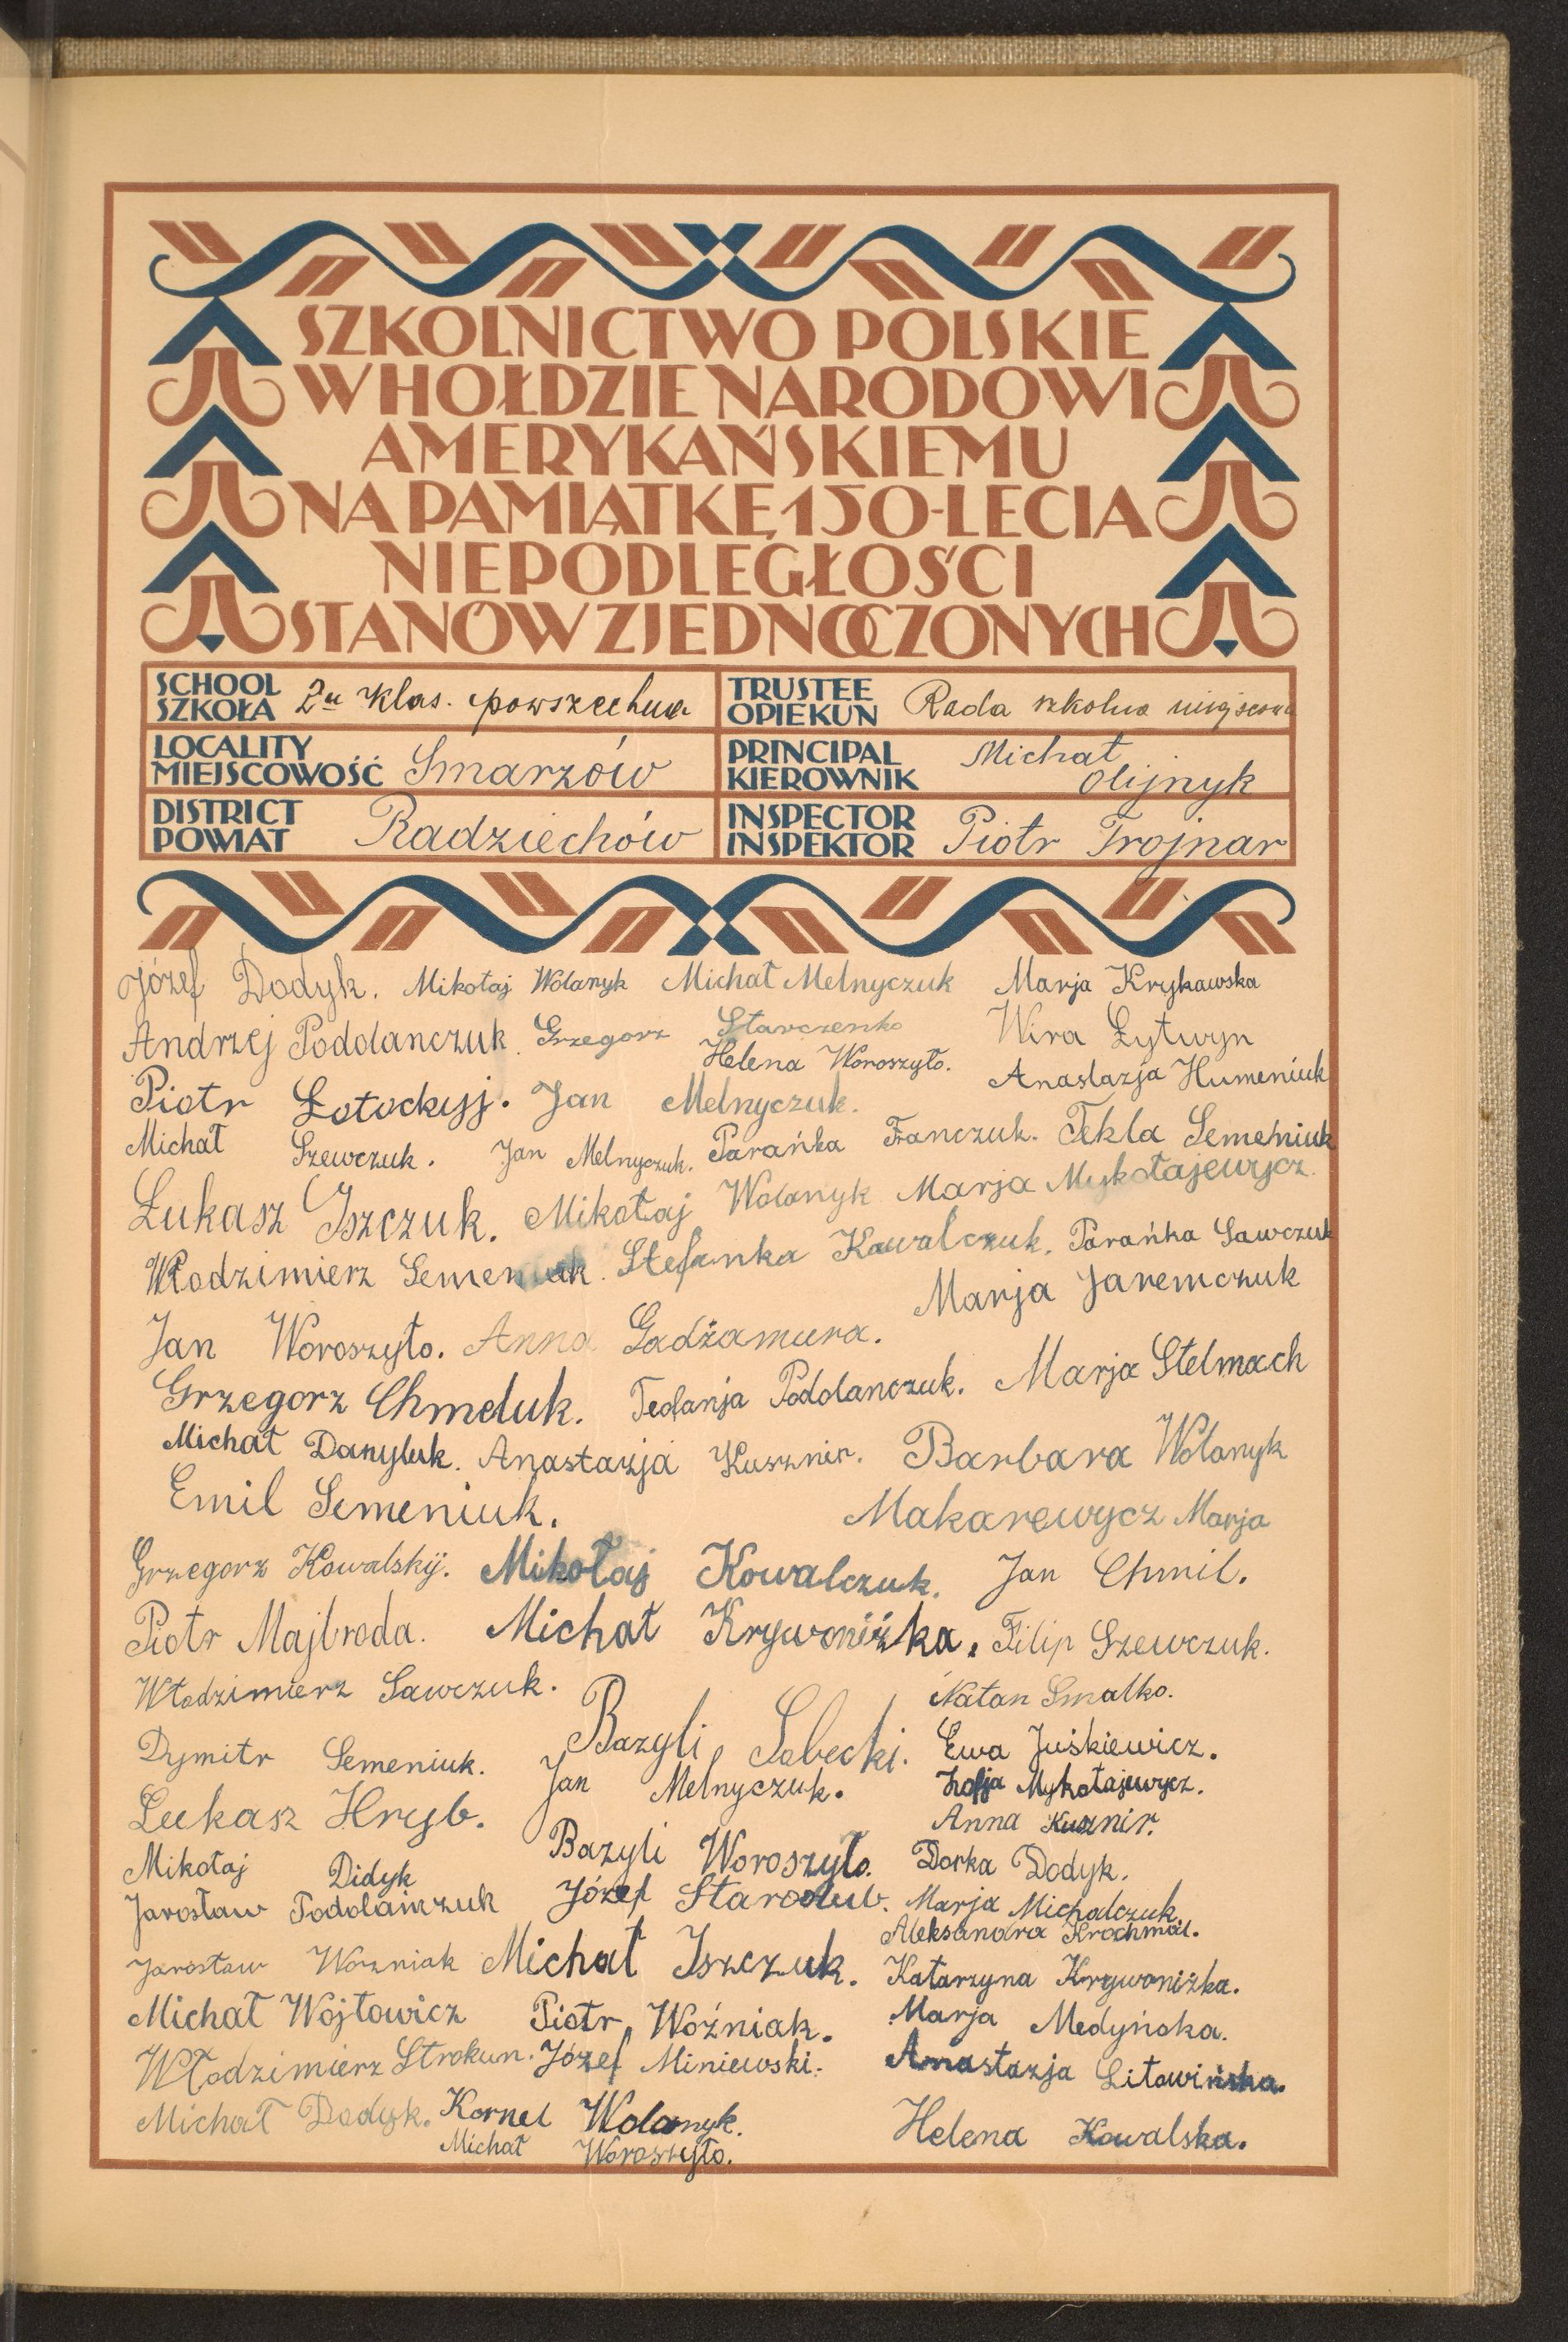 SZKOLNICTWO POLSKIE
W HOŁDZIE NARODOWI
AMERYKAŃSKIEMU
NA PAMIĄTKĘ 150-LECIA
NIEPODLEGŁOŚCI
STANÓW ZJEDNOCZONYCH
SCHOOL SZKOŁA 2u klas. powszechna
TRUSTEE OPIEKUN Rada szkolna miejscowa
LOCALITY MIEJSCOWOŚĆ Smarzów
PRINCIPAL KIEROWNIK Michał Olijnyk
DISTRICT POWIAT Radziechów
INSPECTOR INSPEKTOR Piotr Trojnar
Józef Dodyk. Mikołaj Wolanyk Michał Melnyczuk Marja Krykawska
Andrzej Podolanczuk. Grzegorz Starczenko Wira Łytwyn
Helena Woroszyło. Anastazja Humeniuk
Piotr Łotockyj. Jan Melnyczuk.
Michał Szewczuk. Jan Melnyczuk. Parańka Franczuk. Tekla Semeniuk
Łukasz Iszczuk. Mikołaj Wolanyk Marja Mykołajewycz.
Włodzimierz Semeniuk. Stefanka Kawalczuk. Parańka Sawczuk
Jan Woroszyło. Anna Gadżamura. Marja Jaremczuk
Grzegorz Chmeluk. Teofanja Podolanczuk. Marja Stelmach
Michał Danyluk. Anastazja Kusznir. Barbara Wolanyk
Emil Semeniuk. Makarewycz Marja
Grzegorz Kowalskij. Mikołaj Kowalczuk. Jan Chmil.
Piotr Majbroda. Michał Krywoniżka. Filip Szewczuk.
Włodzimierz Sawczuk. Natan Smalko.
Dymitr Semeniuk. Bazyli Sobecki. Ewa Juśkiewicz.
Jan Melnyczuk. Zofja Mykołajewycz.
Łukasz Hryb. Anna Kusznir.
Mikołaj Didyk Bazyli Woroszyło. Dorka Dodyk.
Jarosław Podolańczuk Józef Starodub. Marja Michalczuk
Aleksandra Krochmal.
Jarosław Wozniak Michał Iszczuk. Katarzyna Krywoniżka.
Michał Wojtowicz Piotr Woźniak. Marja Medyńska.
Włodzimierz Strokun. Józef Miniewski. Anastazja Litawińska.
Michał Dodyk. Kornel Wolanyk. Helena Kowalska.
Michał Woroszyło.